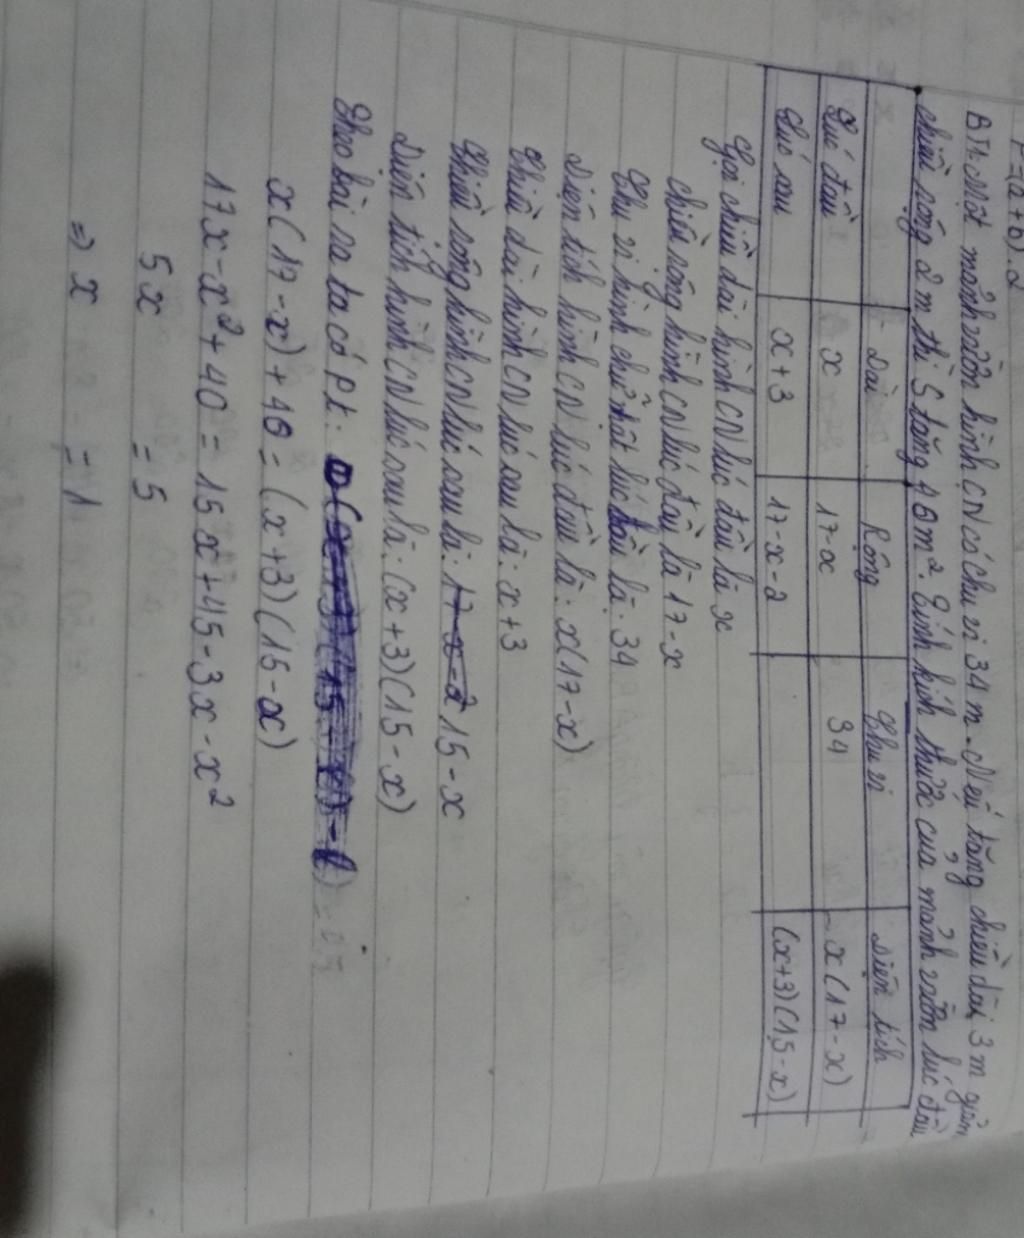 P=(a+b).2
BT1: Một mảnh vườn hình CN có chu vi 34 m. Nếu tăng chiều dài 3 m giảm
chiều rộng 2 m thì S tăng 40m². Tính kích thước của mảnh vườn lúc đầu
Dài Rộng Chu vi Diện tích
Lúc đầu x 17-x 34 x(17-x)
Lúc sau x+3 17-x-2 (x+3)(15-x)
Gọi chiều dài hình CN lúc đầu là x
chiều rộng hình CN lúc đầu là 17-x
Chu vi hình chữ nhật lúc đầu là: 34
Diện tích hình CN lúc đầu là: x(17-x)
Chiều dài hình CN lúc sau là: x+3
Chiều rộng hình CN lúc sau là: 17-x-2 15-x
Diện tích hình CN lúc sau là: (x+3)(15-x)
Theo bài ra ta có pt:
x(17-x)+40=(x+3)(15-x)
17x-x²+40=15x+45-3x-x²
5x = 5
⇒ x = 1